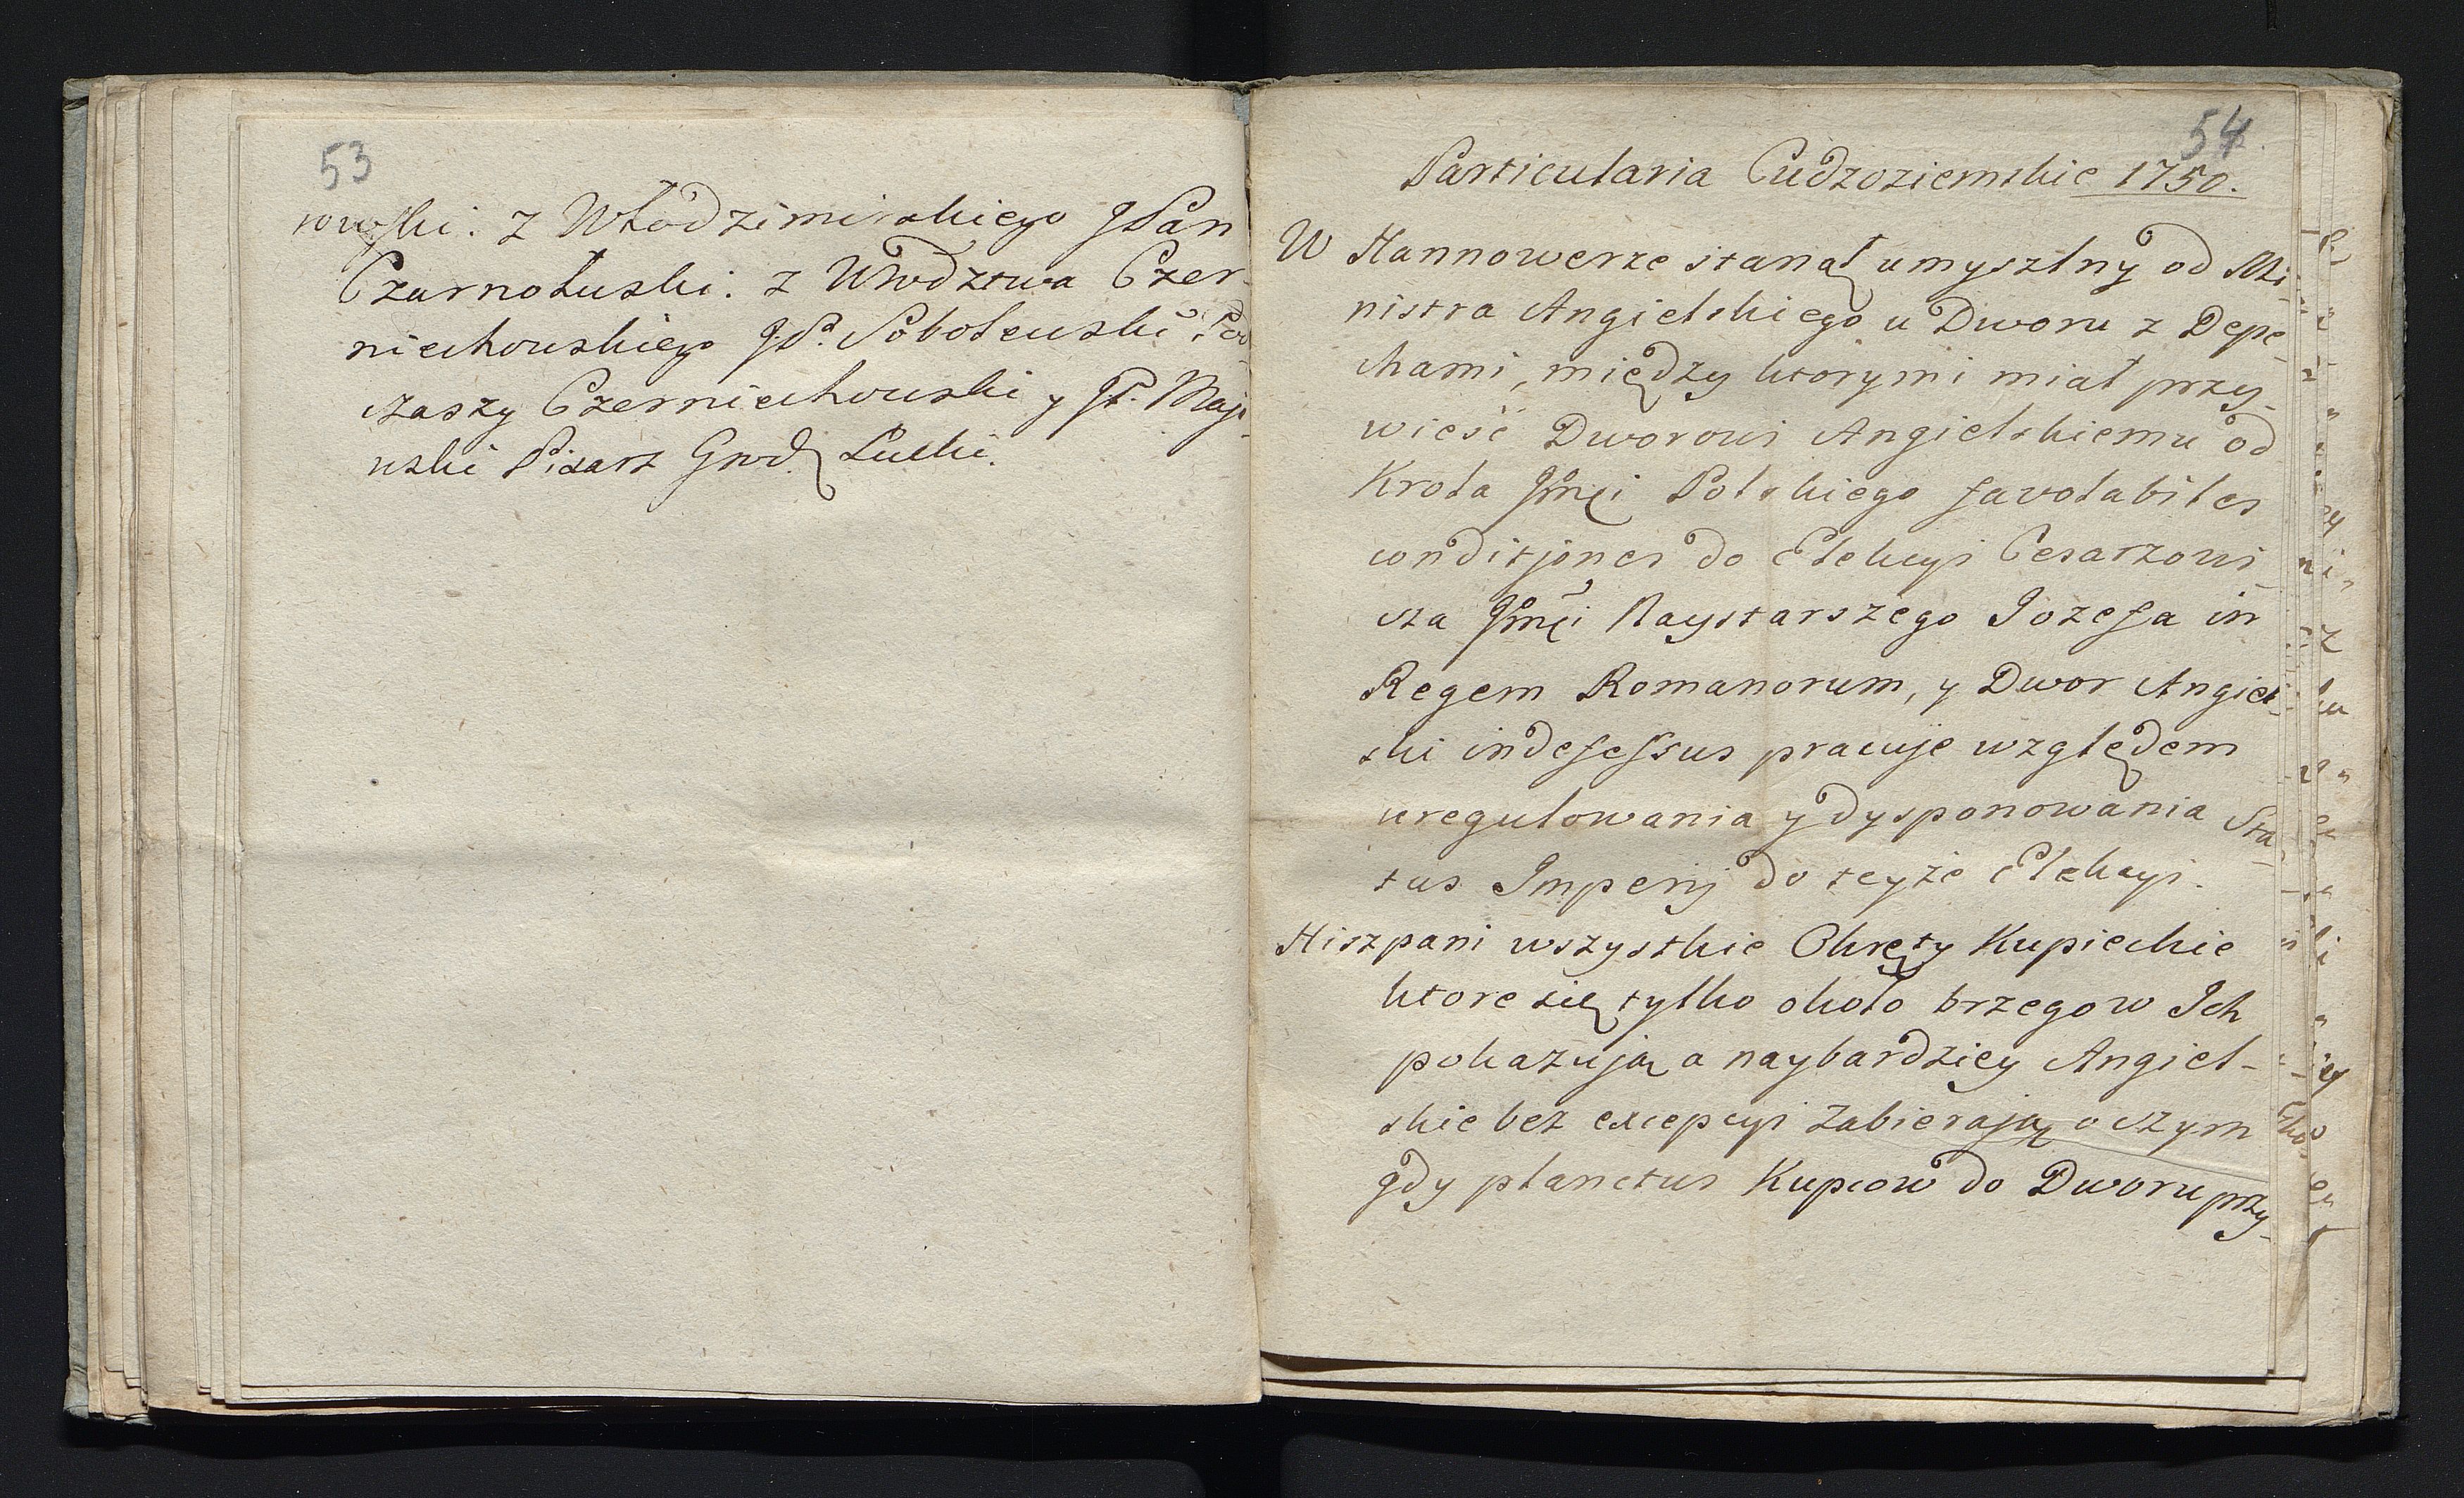 53
rowski. z Włodzimirskiego JPan
Czarnołuski. z Wwdztwa Czer-
niechowskiego J.P. Sobolewski Pod-
czaszy Czerniechowski y JP. Maje-
wski Pisarz Grod. Łucki.
54
Particularia Cudzoziemskie 1750.
W Hannowerze stanął umyszlny od Mi-
nistra Angielskiego u Dworu z Depe-
chami, między ktorymi miał przy-
wieść Dworowi Angielskiemu od
Krola Jmći Polskiego favolabiles
conditjones do Elekcyi Cesarzowi-
cza Jmći Naystarszego Jozefa in
Regem Romanorum, y Dwor Angiel-
ski indefessus pracuje względem
uregulowania y dysponowania Sta-
tus Imperij do teyże Elekcyi.
Hiszpani wszystkie Okręty Kupieckie
ktore się tylko około brzegow Ich
pokazują a naybardziey Angiel-
skie bez excepcyi zabierają o czym
gdy planctus Kupcow do Dworu przy-